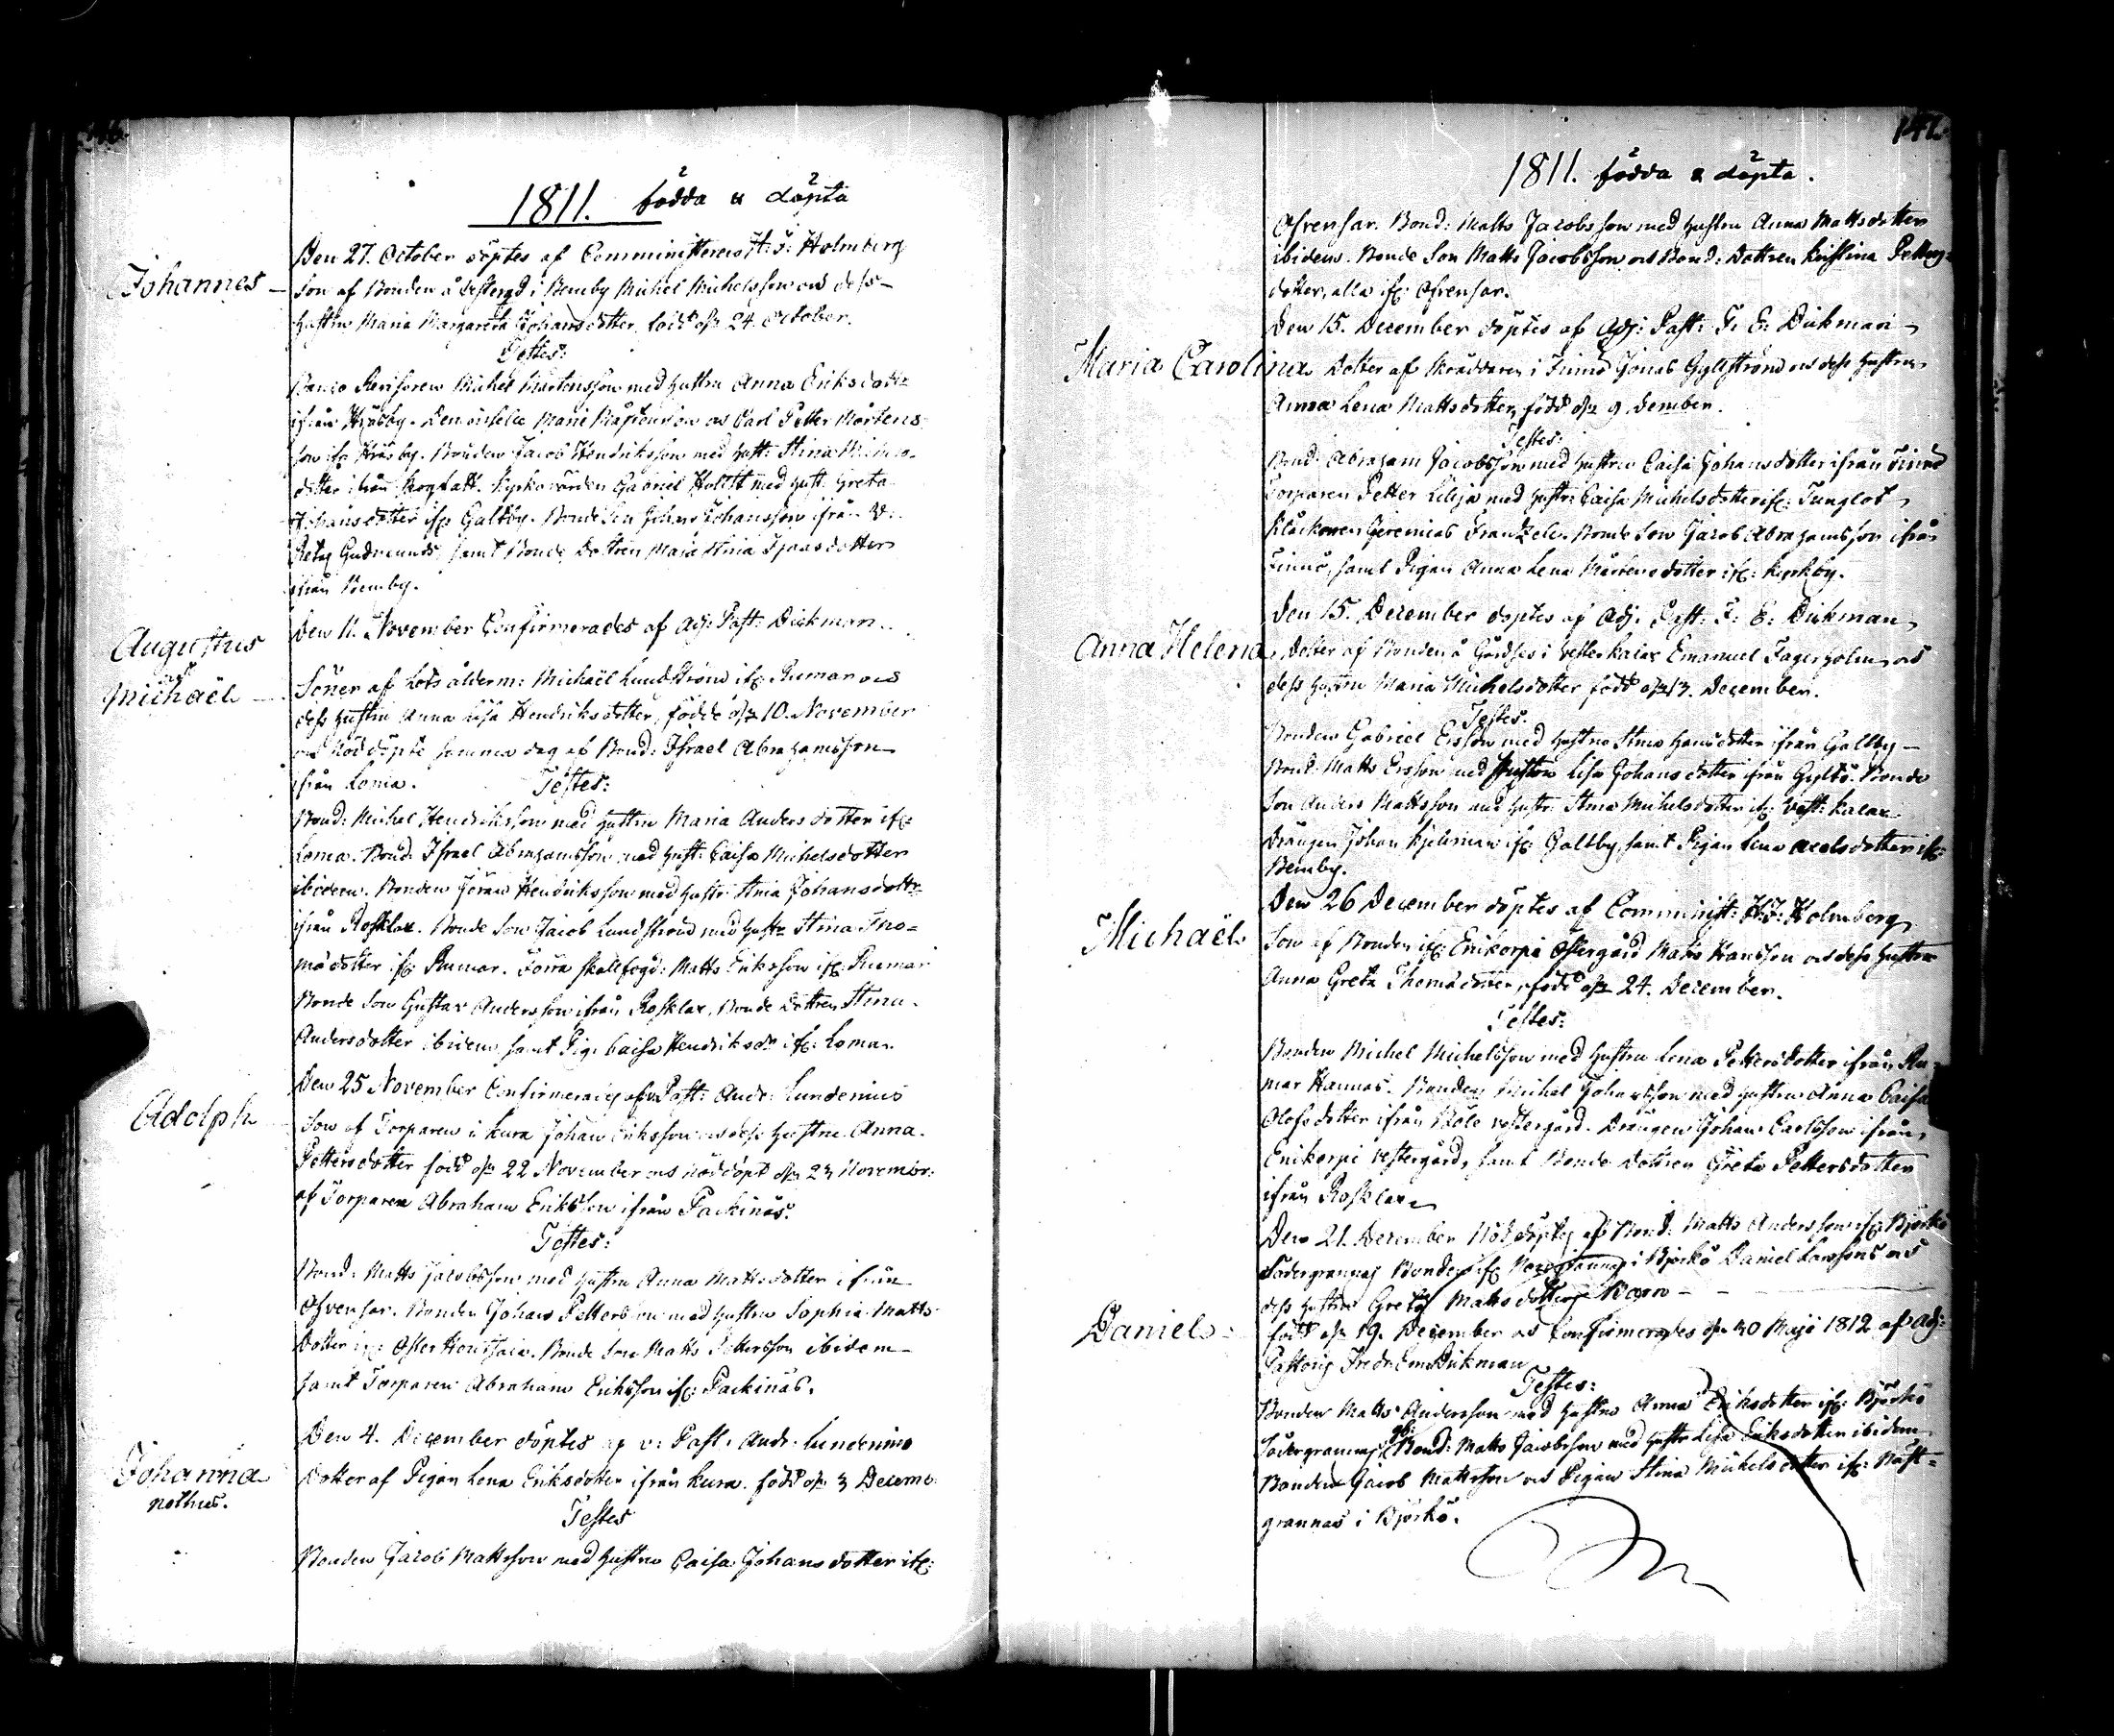 1811. födda & döpta
Johannes
Den 27. October döptes af Comministeren H: J: Holmberg
Son af Bonden å Vestergd i Benby Michel Michelsson och dess
hustru Maria Margareta Johansdotter, född d. 24. October.
Testes:
Revisoren Michel Mårtensson med hustru Anna Eriksdotter
ifrån Kräsby. Carl Petter Mårtens-
son ifr: Kräsby. Bonden Jacob Hendriksson med hust: Stina Michels-
dotter ifrån Kyrkovärden Gabriel med hust: Greta
Johansdotter ifr: Galtby. Bonde Son Johan Johansson ifrån
samt Bonde Dottren Maja Stina
ifrån Benby.
Augustus
och
Michaël
Den 11. November Confirmerades af Adj: Past: Dickman
Söner af Lots ålderm: Michaël Lundström ifr: Rumar och
dess hustru Anna Lisa Hendriksdotter, födde d. 10. November
och Nöddöpte samma dag af Bond: Israel Abrahamsson
ifrån Loma. Testes:
Bond: Michel Hendriksson med hustru Maria Andersdotter ifr:
Loma. Bond: Israel Abrahamsson med hust: Caisa Michelsdotter
ibidem. Bonden Jöran Hendriksson med hustr: Stina Johansdottr
ifrån Rosklax. Bonde Son Jacob Lundström med hustr Stina Tho=
mädotter ifr: Rumar. Matts Eriksson ifr: Rumar
Bonde Son Gustav Andersson ifrån Rosklax, Bonde Dottren Stina
Andersdotter ibidem, samt Pig: Caisa Hendriksdr ifr: Loma.
Adolph
Den 25 November Confirmerades af v: Past: Andr: Lundenius
Son af Torparen i Kura Johan Eriksson och dess hustru Anna
Pettersdotter född d. 22 November och nöddöpt d. 23 November
af Torparen Abraham Eriksson ifrån Packinäs.
Testes:
Bond: Matts Jacobsson med hustru Anna Mattsdotter ifrån
Ofvensar. Bonden Johan Pettersson med hustru Sophia Matts
dotter ifr: Öster Bonde Son Matts Pettersson ibidem
samt Torparen Abraham Eriksson ifr: Packinäs.
Johanna
nothus.
Den 4. December döptes af v: Past: Andr: Lundenius
Dotter af Pigan Lena Eriksdotter ifrån Kura. född d. 3 Decemb:
Testes
Bonden Jacob Mattsson med hustru Caisa Johansdotter ifr:
1811. födda & döpta.
Ofvensar. Bond: Matts Jacobsson med hustru Anna Mattsdotter
ibidem. Bonde Son Matts Jacobsson och Bond: Dottren Kristina Petters=
dotter, alla ifr: Ofvensar.
Maria Carolina
Den 15. December döptes af Adj: Past: F: E: Dickman
Dotter af Skräddaren i Finnö Jonas Gyllström och dess hustru
Anna Lena Mattsdotter, född d. 9. Dember.
Testes:
Bond: Abraham Jacobsson med hustru Caisa Johansdotter ifrån Finnö
Torparen Petter Lilja med hustr: Caisa Michelsdotter ifr:
Klåckaren Jeremias Frantzel. Bonde Son Jacob Abrahamsson ifrån
Finnö, samt Pigan Anna Lena Mårtensdotter ifr: Kyrkby.
Anna Helena
Den 15. December döptes af Adj. Past: F: E: Dickman
Dotter af Bonden å Gårdses i Vesterkalax Emanuel Fagerholm och
dess hustru Maria Michelsdotter född d. 13. December.
Testes.
Bonden Gabriel Ersson med hustru Stina Hansdotter ifrån Galtby
Bond: Matts Ersson med hustru Lisa Johansdotter ifrån Gyltö. Bonde
Son Anders Mattsson med hustr. Stina Michelsdotter ifr: Vest: kalax
Drängen Johan ifr: Galtby, samt Pigan Lena Axelsdotter ifr:
Benby.
Michaël
Den 26 December döptes af Comminist: H: J: Holmberg
Son af Bonden ifr: Enikorpi Östergård Matts Hansson och dess hustru
Anna Greta Thomädotter, född d. 24. December.
Testes:
Bonden Michel Michelsson med hustru Lena Pettersdotter ifrån Ru-
mar Hannas. Bonden Michel Johansson med hustru Anna Caisa
Olofsdotter ifrån Vestergård. Drängen Johan Carlsson ifrån
Enikorpi Vestergård, samt Bonde dottren Greta Pettersdotter
ifrån Rosklax
Daniel
Den 21. December Nöddöptes af Bond: Matts Andersson ifr: Björkö
Södergrannas Bonden ifr: i Björkö Daniel Larssons och
dess hustru Greta Mattsdotters Barn
född d. 19. December och Confirmerades d. 30 Maji 1812 af Adj:
Pastoris Fredr: Em: Dickman
Testes:
Bonden Matts Andersson med hustru Anna Eriksdotter ifr: Björkö
Södergrannas, Bond: Matts Jacobsson med hustr Lisa Eriksdotter ibidem
Bonden Jacob Mattsson och Pigan Stina Michelsdotter ifr: Näst=
grannas i Björkö.